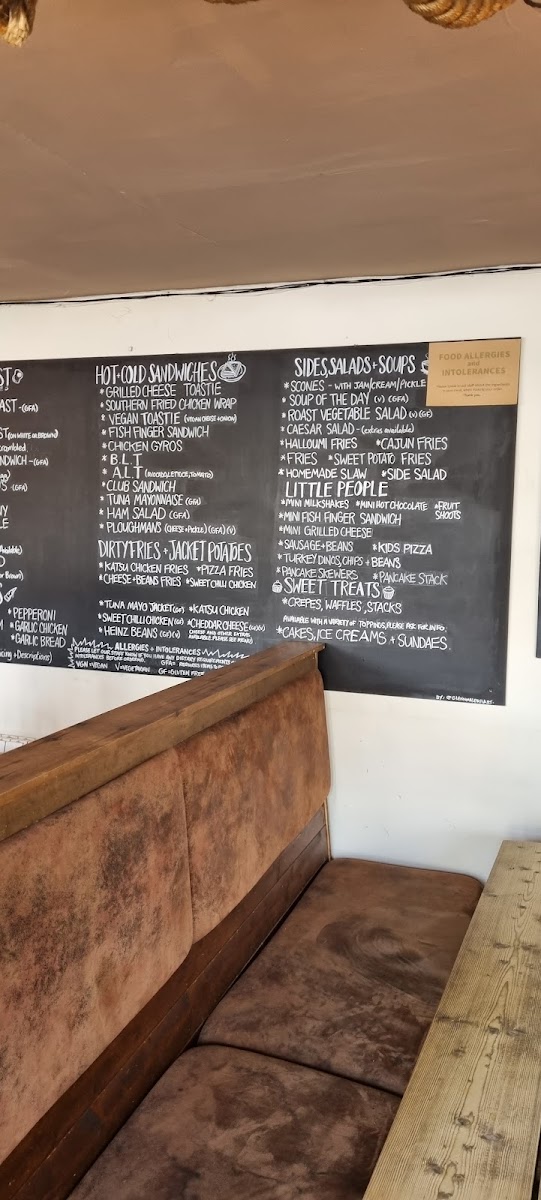 ST
AST -(GFA)
ST (ON WHITE OR BROWN)
NDWICH -(GFA)
(GFA)
* PEPPERONI
* GARLIC CHICKEN
* GARLIC BREAD
HOT+COLD SANDWICHES
* GRILLED CHEESE TOASTIE
* SOUTHERN FRIED CHICKEN WRAP
* VEGAN TOASTIE (VEGAN CHEESE + ONION)
* FISH FINGER SANDWICH
* CHICKEN GYROS
* B.L.T
* A.L.T (AVOCADO, LETTUCE, TOMATO)
* CLUB SANDWICH
* TUNA MAYONNAISE (GFA)
* HAM SALAD (GFA)
* PLOUGHMANS (CHEESE + PICKLE) (GFA) (V)
DIRTY FRIES + JACKET POTATOES
* KATSU CHICKEN FRIES * PIZZA FRIES
* CHEESE + BEANS FRIES * SWEET CHILLI CHICKEN
* TUNA MAYO JACKET (GF) * KATSU CHICKEN
* SWEET CHILLI CHICKEN (GF) * CHEDDAR CHEESE (GF)(V)
* HEINZ BEANS (GF)(V)
ALLERGIES + INTOLERANCES
PLEASE LET OUR STAFF KNOW IF YOU HAVE ANY DIETARY REQUIREMENTS
INTOLERANCES BEFORE ORDERING.
VGN = VEGAN V = VEGETARIAN GF = GLUTEN FREE
SIDES, SALADS + SOUPS
* SCONES - WITH JAM/CREAM/PICKLE
* SOUP OF THE DAY (V) (GFA)
* ROAST VEGETABLE SALAD (V) (GF)
* CAESAR SALAD -(extras available)
* HALLOUMI FRIES * CAJUN FRIES
* FRIES * SWEET POTATO FRIES
* HOMEMADE SLAW * SIDE SALAD
LITTLE PEOPLE
* MINI MILKSHAKES * MINI HOT CHOCOLATE * FRUIT SHOOTS
* MINI FISH FINGER SANDWICH
* MINI GRILLED CHEESE
* SAUSAGE + BEANS * KIDS PIZZA
* TURKEY DINOS, CHIPS + BEANS
* PANCAKE SKEWERS * PANCAKE STACK
SWEET TREATS
* CREPES, WAFFLES, STACKS
AVAILABLE WITH A VARIETY OF TOPPINGS, PLEASE ASK FOR INFO
* CAKES, ICE CREAMS + SUNDAES
FOOD ALLERGIES
and
INTOLERANCES
Thank you